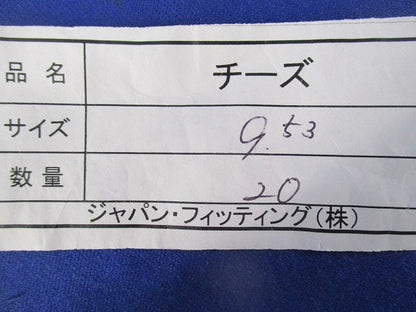 品名 チーズ
サイズ 9.53
数量 20
ジャパン・フィッティング(株)